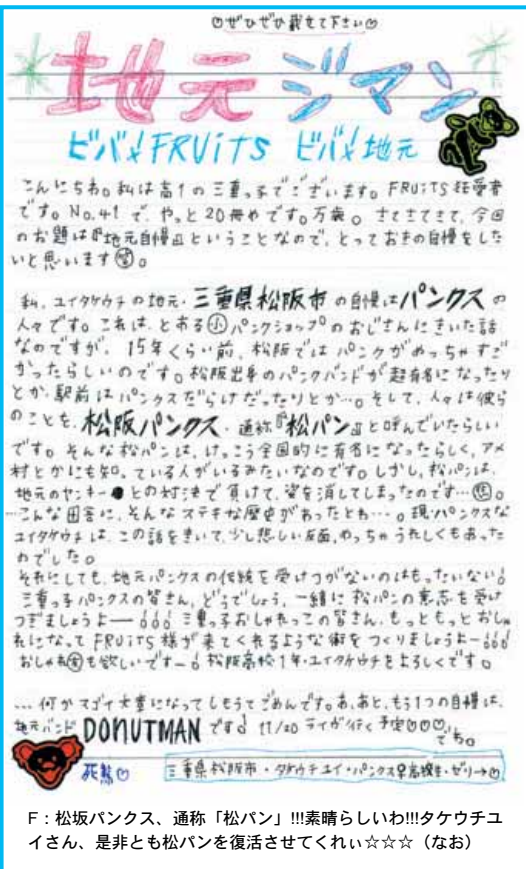 ♡ぜひぜひ載せて下さい♡
地元ジマン
ビバ!FRUiTS ビバ!地元
こんにちわ。私は高1の三重っ子でございます。FRUiTS狂愛者
です。No.41で、やっと20冊めです。万歳。さてさてさて、今回
のお題は『地元自慢』ということなので、とっておきの自慢をした
いと思います笑。
私、ユイタケウチの地元・三重県松阪市の自慢はパンクスの
人々です。これは、とある小パンクショップのおじさんにきいた話
なのですが、15年くらい前、松阪ではパンクがめっちゃすご
かったらしいのです。松阪出身のパンクバンドが超有名になったり
とか、駅前はパンクスだらけだったりとか…。そして、人々は彼ら
のことを、松阪パンクス、通称『松パン』と呼んでいたらしい
です。そんな松パンは、けっこう全国的に有名になったらしく、アメ
村とかにも知っている人がいるみたいなのです。しかし、松パンは、
地元のヤンキーとの対決で負けて、姿を消してしまったのです…悲。
…こんな田舎に、そんなステキな歴史があったとわ…。現パンクスな
ユイタケウチは、この話をきいて、少し悲しい反面、めっちゃうれしくもあった
わでした。
それにしても、地元パンクスの伝統を受けつがないのはもったいない!
三重っ子パンクスの皆さん、どうでしょう、一緒に松パンの意志を受け
つぎましょうよー!!! 三重っ子おしゃれっこの皆さん、もっともっとおしゃ
れになってFRUiTS様が来てくれるような街をつくりましょうよー!!!
おしゃれ友も欲しいですー! 松阪高校1年・ユイタケウチをよろしくです。
…何かスゴイ文章になってしもうてごめんです。あ、あと、もう1つの自慢は、
地元バンドDONUTMANです! 11/20 ライブ行く予定♡♡♡
でわ。
死熊♡
三重県松阪市・タケウチユイ・パンクス♀高校生・ゼリー→♡
F：松坂パンクス、通称「松パン」!!!素晴らしいわ!!!タケウチユ
イさん、是非とも松パンを復活させてくれぃ☆☆☆（なお）